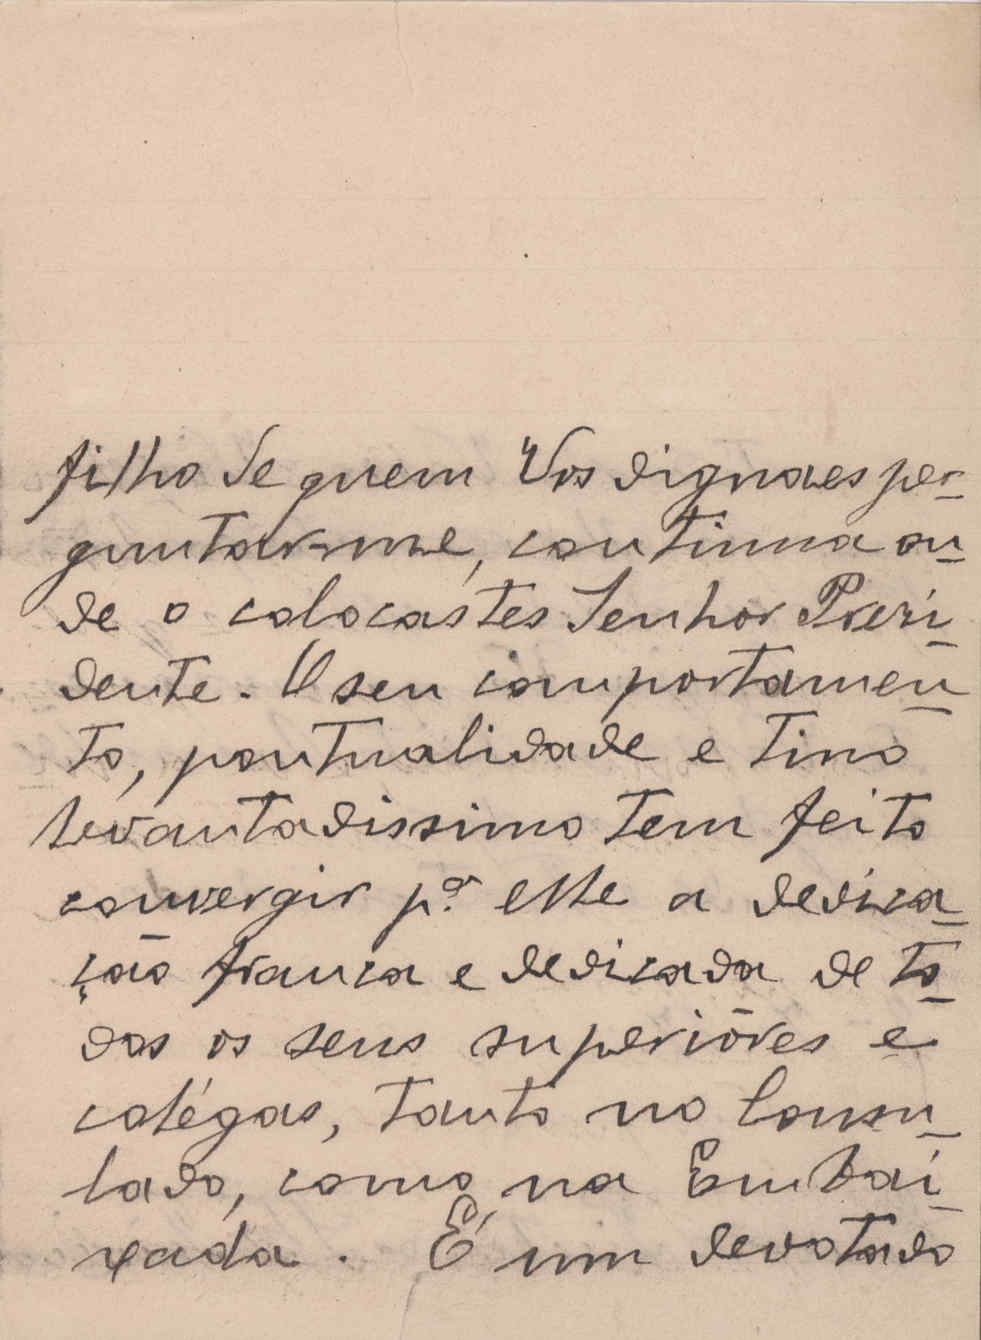 filho de quem Vos dignaes per-
guntar-me, continua on-
de o colocastes Senhor Presi-
dente. O seu comportamen-
to, pontualidade e tino
levantadissimo tem feito
convergir pª elle a dedica-
ção franca e dedicada de to-
dos os seus superiôres e
colégas, tanto no Consu-
lado, como na Embai-
xada. É um devotado